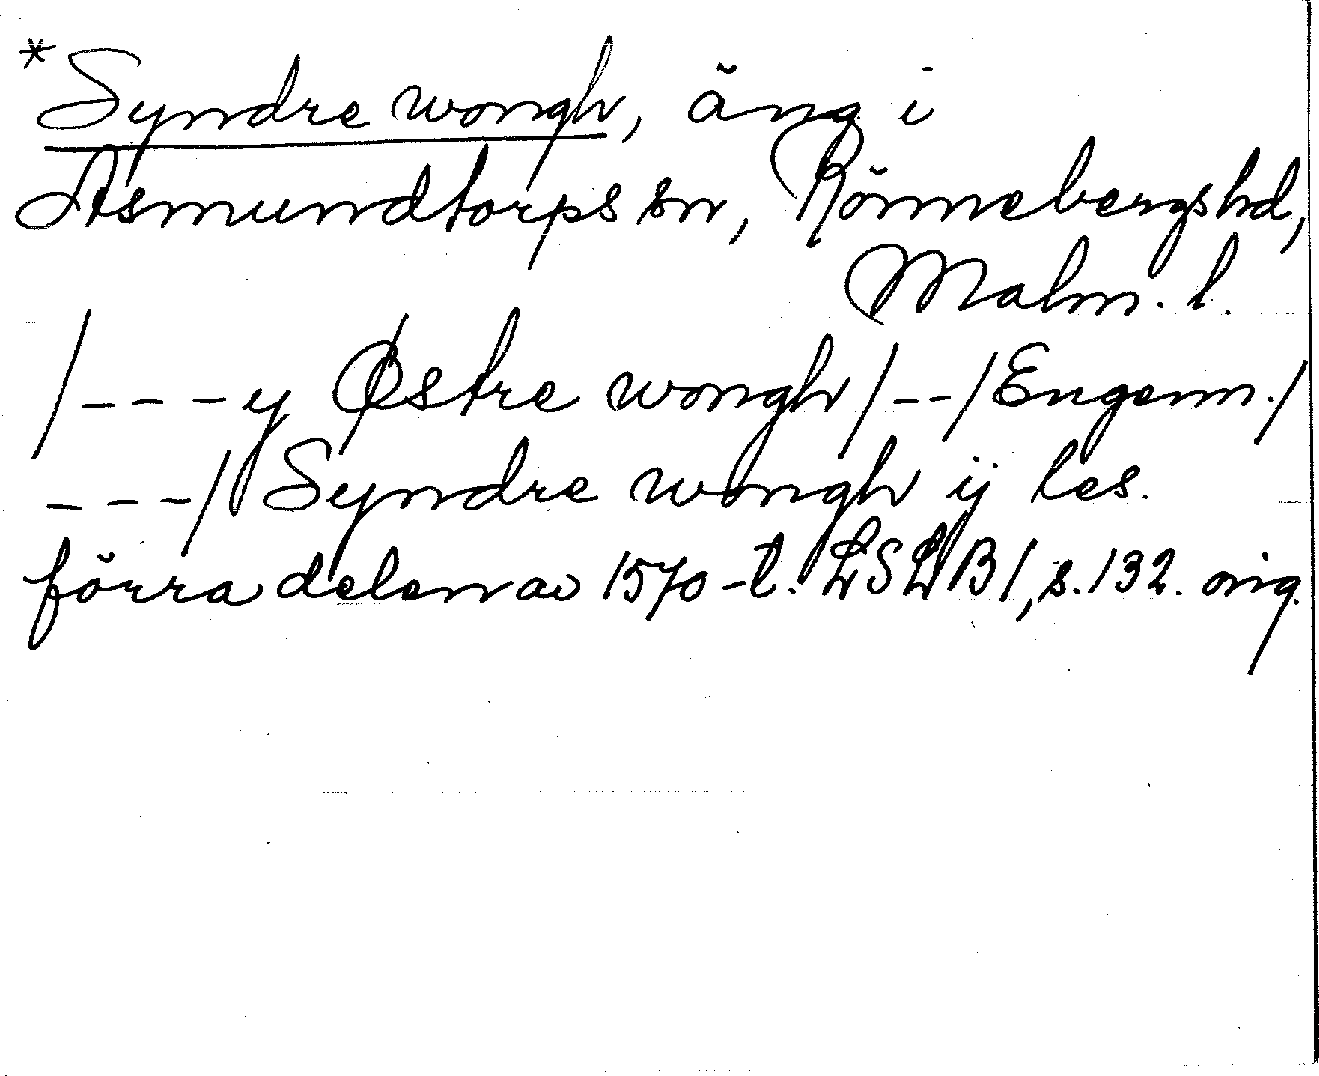 *Syndre wongh, äng i
Asmundtorps sn, Rönnebergs hd,
Malm. l.
/---y Østre wongh/--/Engenn./
---/ Syndre wongh ij les.
förra delen av 1570-t. LSLB 1, s. 132. orig.